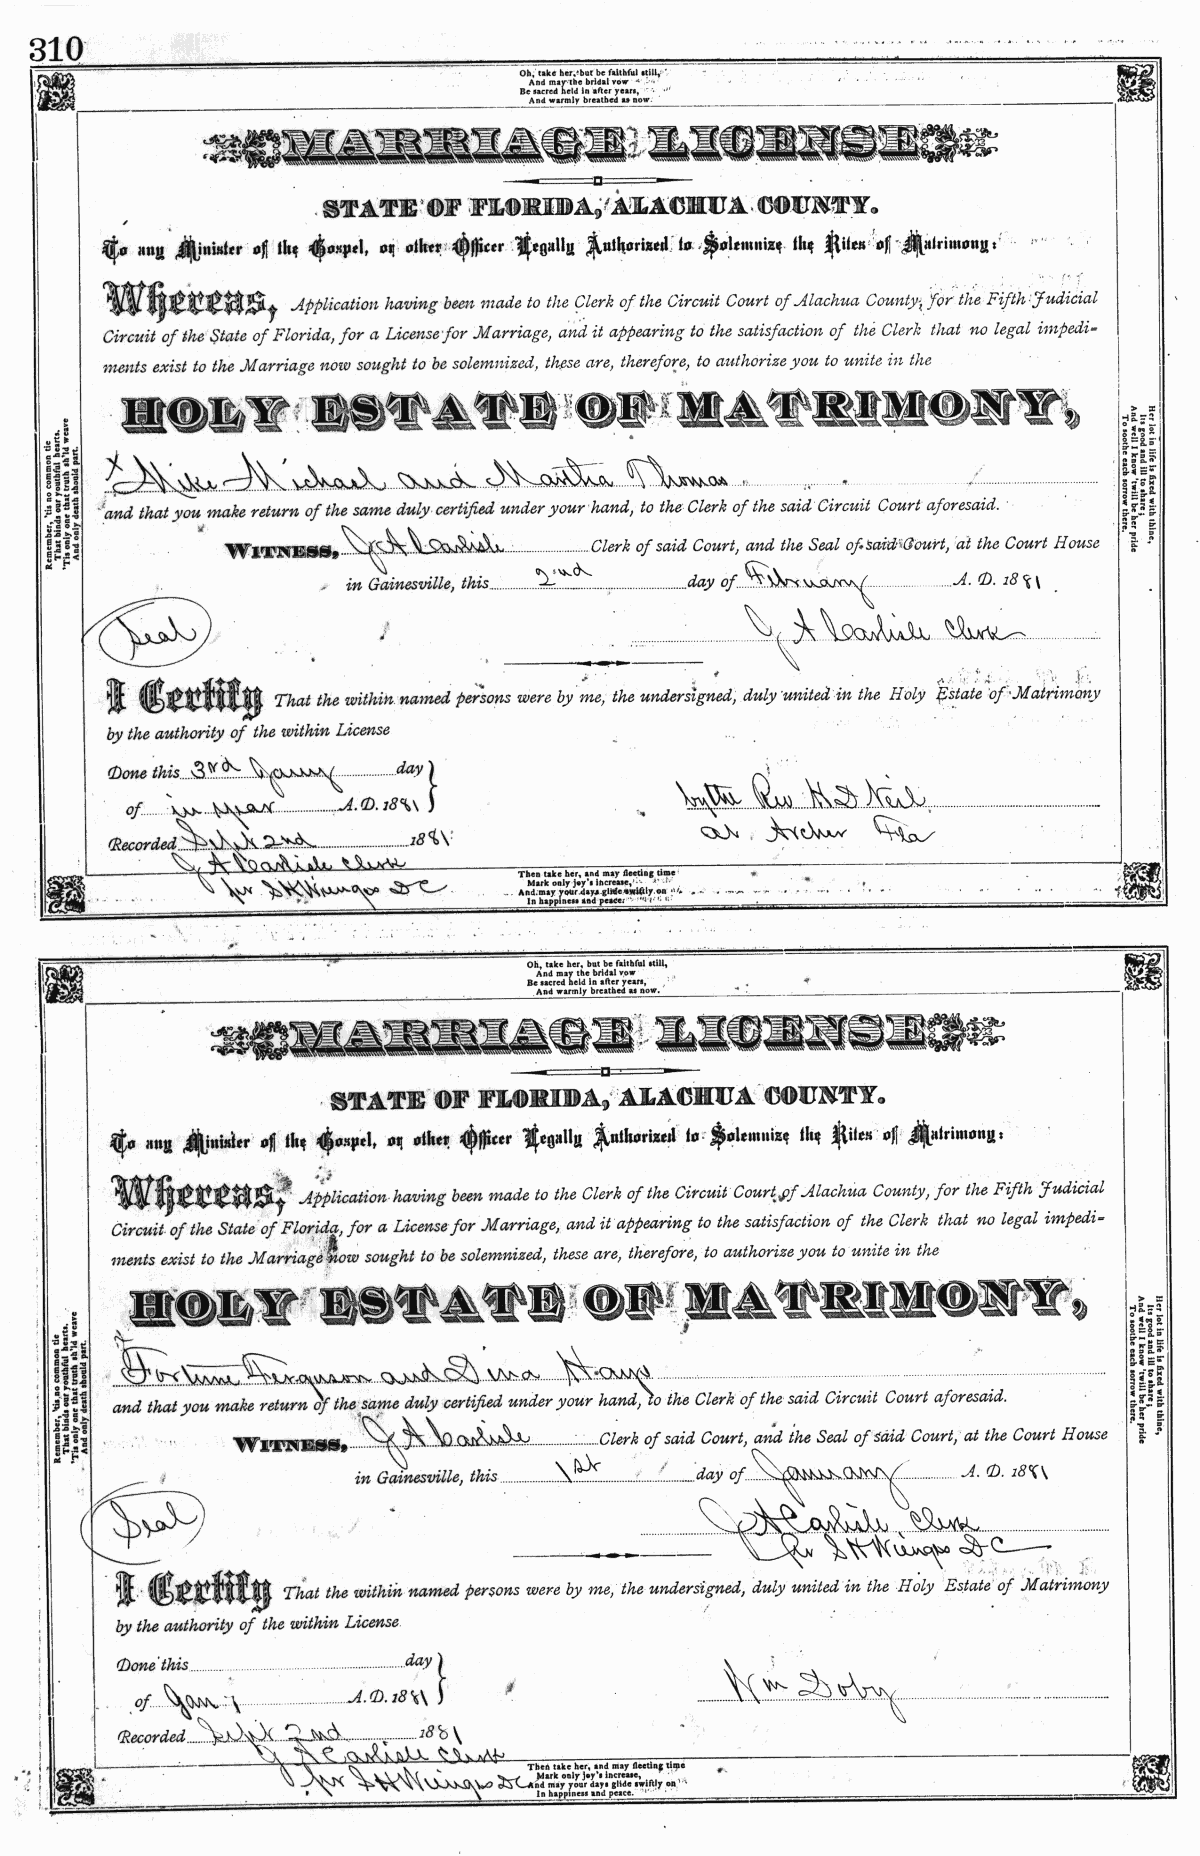 310
Oh, take her, but be faithful still,
And may the bridal vow
Be sacred held in after years,
And warmly breathed as now.
MARRIAGE LICENSE
STATE OF FLORIDA, ALACHUA COUNTY.
To any Minister of the Gospel, or other Officer Legally Authorized to Solemnize the Rites of Matrimony:
Whereas, Application having been made to the Clerk of the Circuit Court of Alachua County, for the Fifth Judicial
Circuit of the State of Florida, for a License for Marriage, and it appearing to the satisfaction of the Clerk that no legal impedi-
ments exist to the Marriage now sought to be solemnized, these are, therefore, to authorize you to unite in the
HOLY ESTATE OF MATRIMONY,
x Mike Michael and Martha Thomas
and that you make return of the same duly certified under your hand, to the Clerk of the said Circuit Court aforesaid.
WITNESS, J A Carlisle Clerk of said Court, and the Seal of said Court, at the Court House
in Gainesville, this 2nd day of February A. D. 1881.
Seal
J A Carlisle Clerk
I Certify That the within named persons were by me, the undersigned, duly united in the Holy Estate of Matrimony
by the authority of the within License
Done this 3rd day
of in year A.D. 1881
by the Rev H D Neil
at Archer Fla
Recorded Sept 2nd 1881
J A Carlisle Clerk
pr S H Wienges D C
Then take her, and may fleeting time
Mark only joy's increase,
And may your days glide swiftly on
In happiness and peace.
Remember, 'tis no common tie
That binds our youthful hearts,
'Tis only one that truth sh'ld weave
And only death should part.
Her lot in life is fixed with thine,
Its good and ill to share;
And well I know 'twill be her pride
To soothe each sorrow there.
Oh, take her, but be faithful still,
And may the bridal vow
Be sacred held in after years,
And warmly breathed as now.
MARRIAGE LICENSE
STATE OF FLORIDA, ALACHUA COUNTY.
To any Minister of the Gospel, or other Officer Legally Authorized to Solemnize the Rites of Matrimony:
Whereas, Application having been made to the Clerk of the Circuit Court of Alachua County, for the Fifth Judicial
Circuit of the State of Florida, for a License for Marriage, and it appearing to the satisfaction of the Clerk that no legal impedi-
ments exist to the Marriage now sought to be solemnized, these are, therefore, to authorize you to unite in the
HOLY ESTATE OF MATRIMONY,
x Fortune Ferguson and Dina Hays
and that you make return of the same duly certified under your hand, to the Clerk of the said Circuit Court aforesaid.
WITNESS, J A Carlisle Clerk of said Court, and the Seal of said Court, at the Court House
in Gainesville, this 1st day of January A. D. 1881
Seal
J A Carlisle Clerk
pr S H Wienges D C
I Certify That the within named persons were by me, the undersigned, duly united in the Holy Estate of Matrimony
by the authority of the within License
Done this day
of Jan 1 A.D. 1881
Wm Doby
Recorded Sept 2nd 1881
J A Carlisle Clerk
pr S H Wienges D C
Then take her, and may fleeting time
Mark only joy's increase,
And may your days glide swiftly on
In happiness and peace.
Remember, 'tis no common tie
That binds our youthful hearts,
'Tis only one that truth sh'ld weave
And only death should part.
Her lot in life is fixed with thine,
Its good and ill to share;
And well I know 'twill be her pride
To soothe each sorrow there.